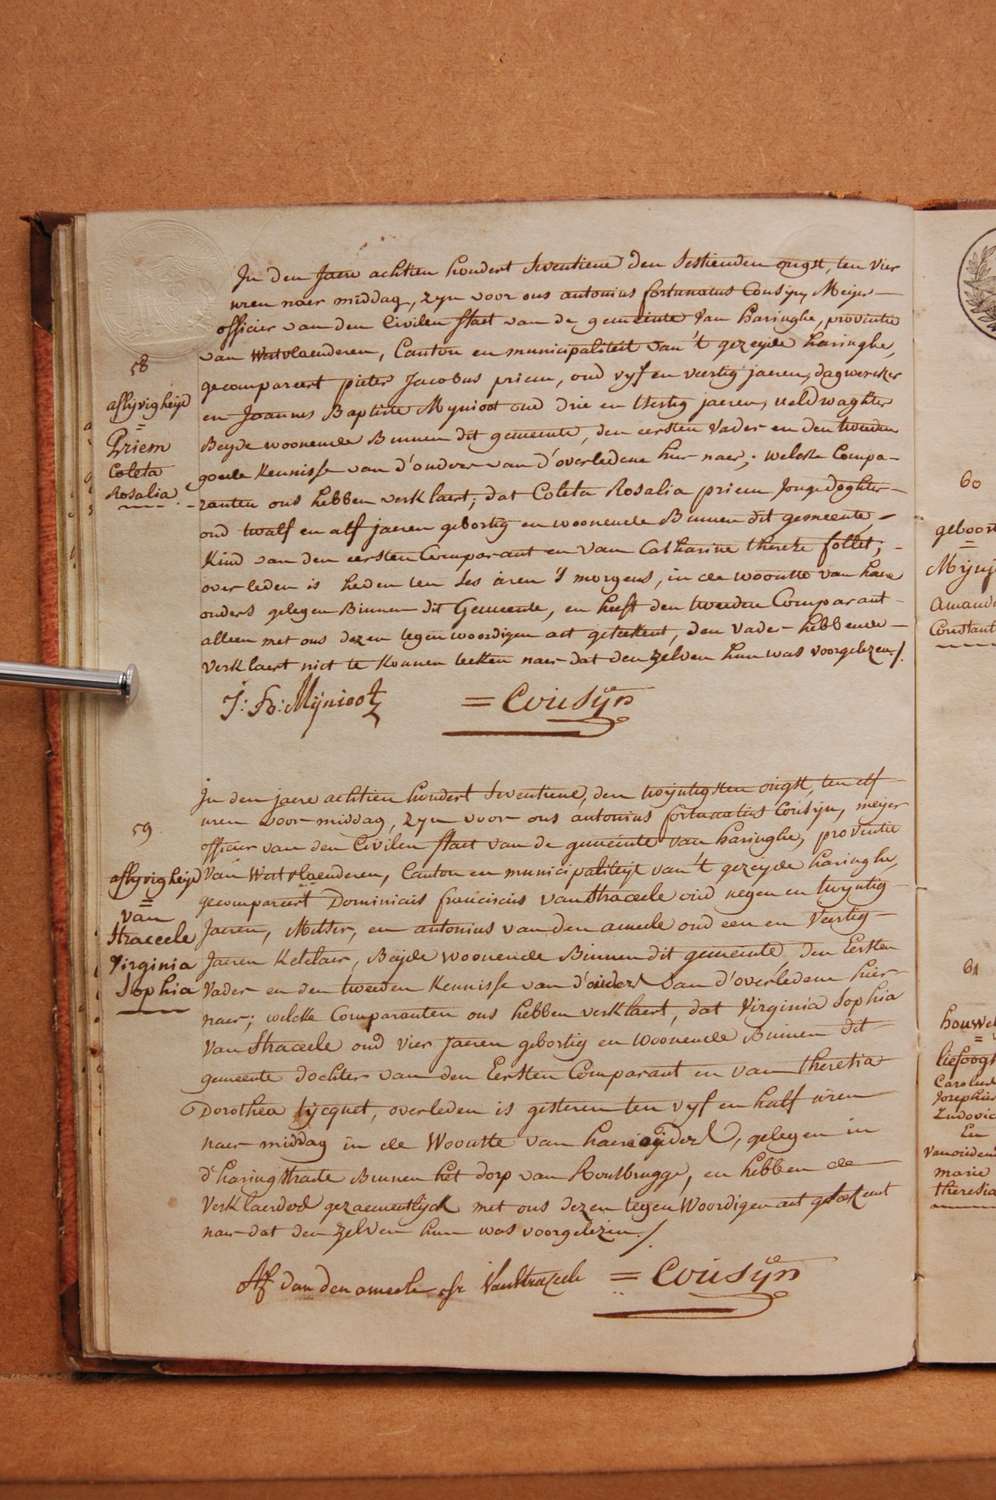 58
aflijvigheijd
=
Priem
Coleta
Rosalia
In den Jaere achtien hondert Seventiene den Sestienden ougst, ten vier
uren naer middag, zijn voor ons antonius fortunatus Cousijn, Meijer
officier van den Civilen Staet van de gemeinte van haringhe, provintie
van Westvlaenderen, Canton en municipaliteit van 't gezeijde haringhe,
gecompareert pieter Jacobus priem, oud vijf en veertig jaeren, dagwercker
en Joannes Baptiste Mijnioot oud drie en tsestig jaeren, veldwaghter
Beijde woonende Binnen dit gemeente, den eersten Vader en den tweeden
goede Kennisse van d'ouders van d'overledene hier naer; welcke Compa-
ranten ons hebben verklaert, dat Coleta Rosalia priem Jonge Doghter
oud twalf en alf jaeren gebortig en woonende Binnen dit gemeente,
Kind van den eersten Comparant en van Catharine therese follet;
overleden is heden ten ses uren 's morgens, in de woonste van haere
ouders gelegen Binnen dit Gemeente, en heeft den tweeden Comparant
alleen met ons dezen tegenwoordigen act geteekent, den vader hebbende
verklaert niet te konnen teeken naer dat den zelven hun was voorgelezen /.
J: Bt: Mijnioot = Cousijn
59
aflijvigheijd
=
van
Straceele
Virginia
Sophia
In den jaere achtien hondert Seventiene, den twijntigsten ougst, ten elf
uren voor middag, zijn voor ons antonius fortunatus Cousijn, meijer
officier van den Civilen Staet van de gemeinte van haringhe, provintie
van Westvlaenderen, Canton en municipaliteijt van 't gezeijde haringhe,
gecompareert Dominicus franciscus van Straceele oud negen en twijntig
Jaeren, Metser, en antonius van den ameele oud een en Veertig
Jaeren Ketelaer, Beijde woonende Binnen dit gemeente, den Eersten
Vader en den tweeden Kennisse van d'ouders van d'overledene hier
naer; welcke Comparanten ons hebben verklaert, dat Virginia Sophia
Van Straceele oud vier Jaeren gebortig en woonende Binnen dit
gemeente dochter van den Eersten Comparant en van theresia
Dorothea lijcquet, overleden is gisteren ten vijf en half uren
naer middag in de Woonste van haere ouders, gelegen in
d'haringstraete Binnen het dorp van Rousbrugge, en hebben de
Verklaerders gezaementlijck met ons dezen tegen Woordigen act geteekent
naer dat den zelven hun was voorgelezen /.
Af Van den ameele Fr VanStraceele = Cousijn
60
geboort
=
Mijnj
Amand
Constant
61
houwel
=
liefoogh
Carolus
Josephus
Ludovic
En
Vanouden
marie
theresia